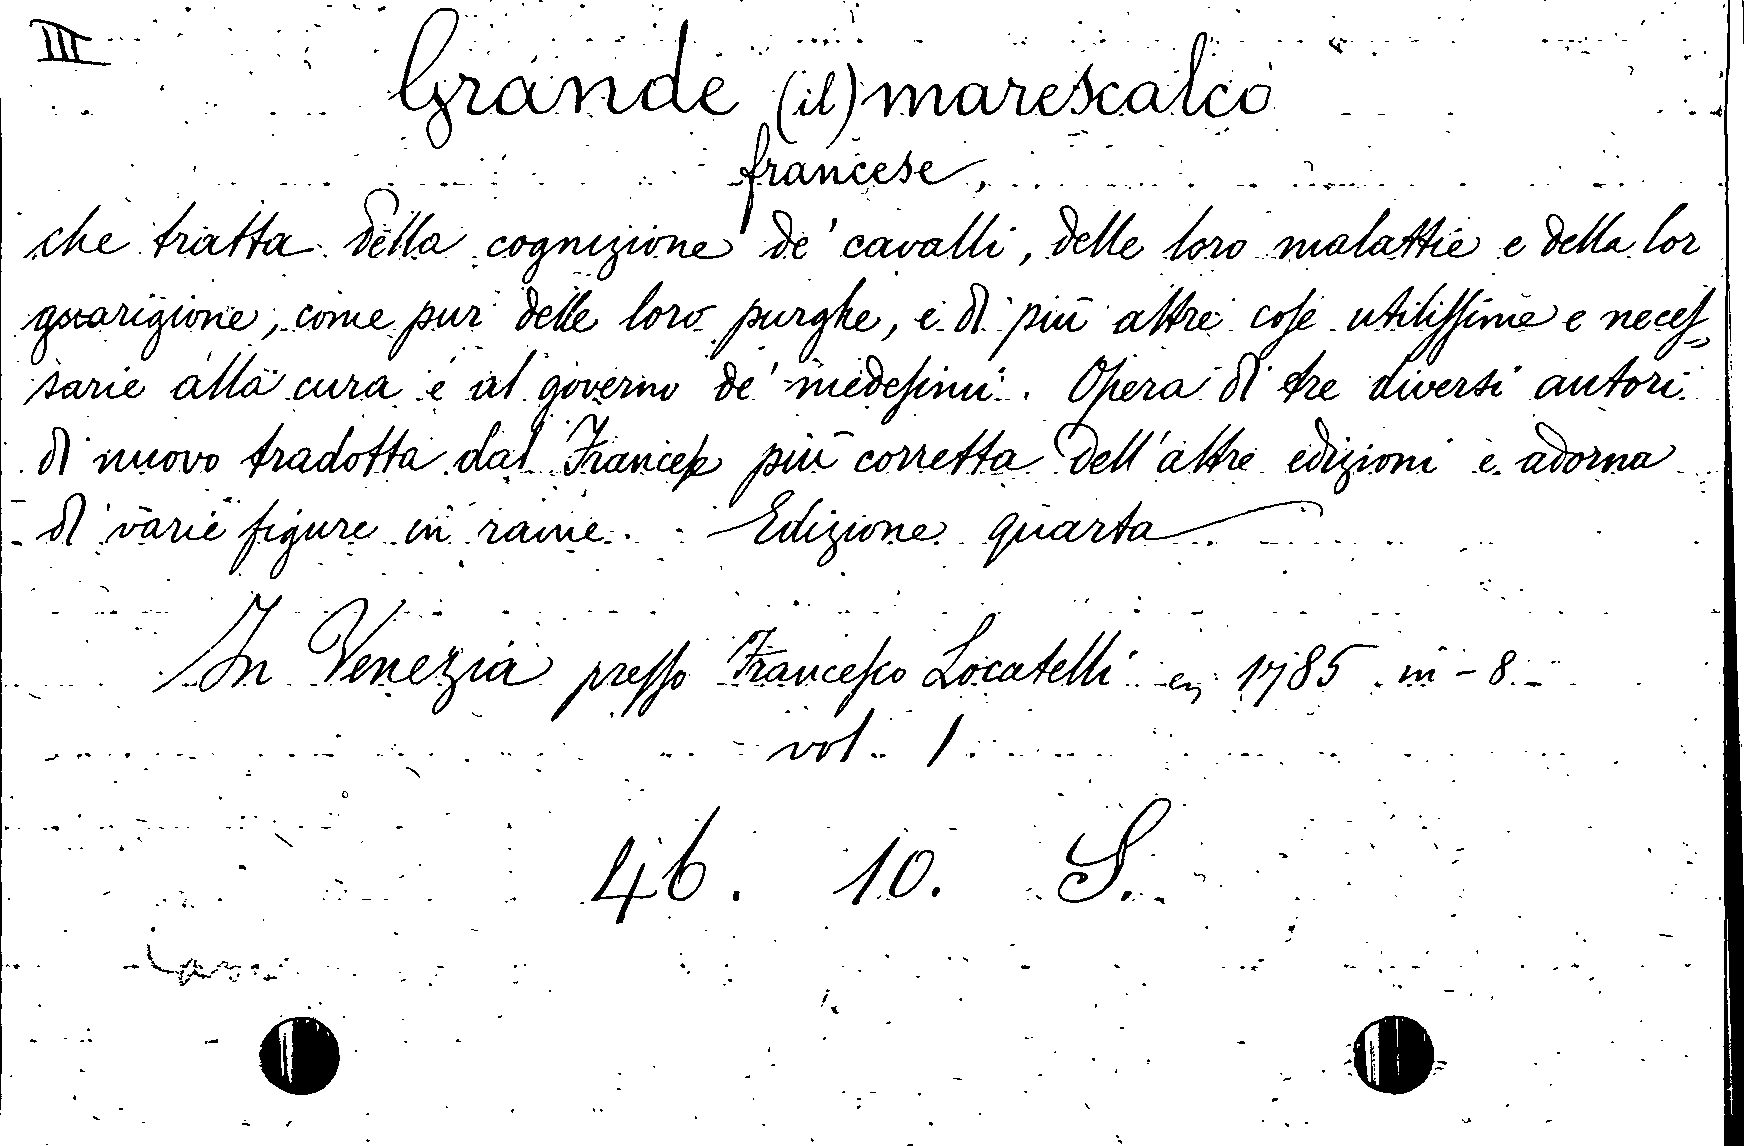 III
Grande (il) marescalco
francese,
che tratta della cognizione de' cavalli, delle loro malattie e della lor
guarigione, come pur delle loro purghe, e di più altre cose utilissime e neces=
sarie alla cura e al governo de' medesimi. Opera di tre diversi autori
di nuovo tradotta dal Francese più corretta dell'altre edizioni e adorna
di varie figure in rame. Edizione quarta
In Venezia presso Francesco Locatelli 1785 in-8.
vol. 1
46. 10. S.